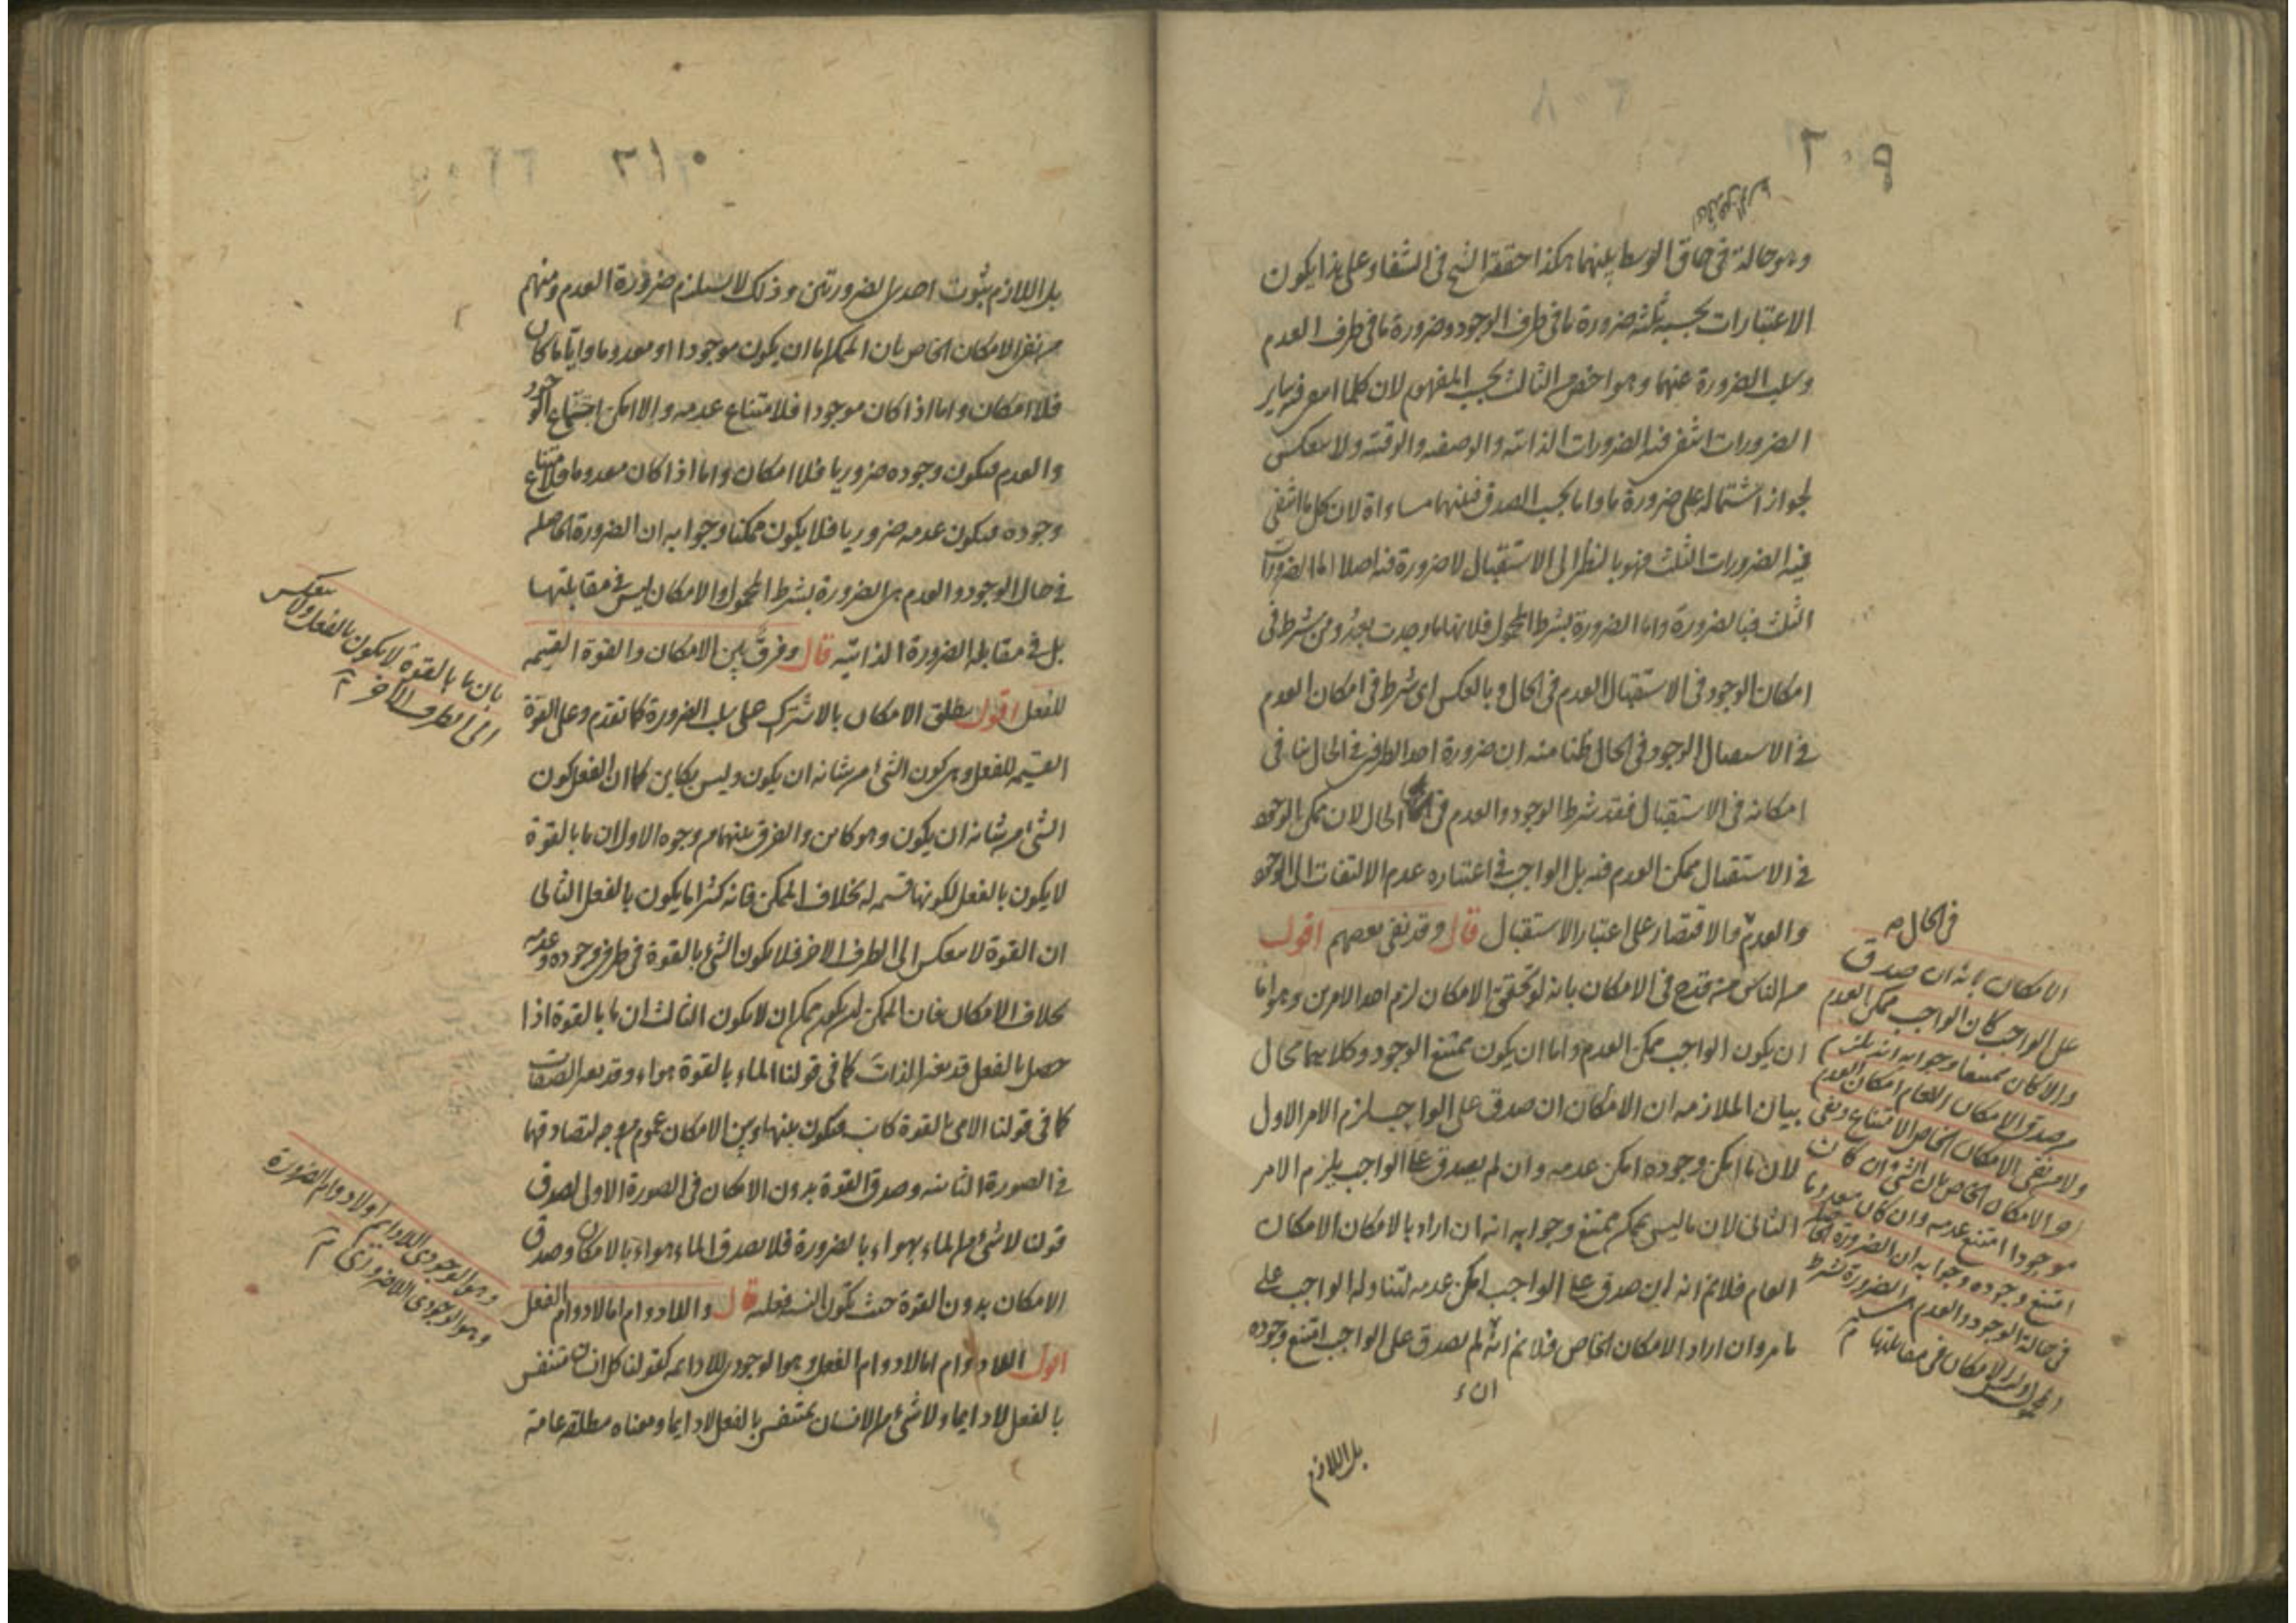 ٢٠٩
وهو حالة في حاق الوسط بينهما هكذا حققه الشيخ في الشفاء وعلى هذا يكون
الاعتبارات بحسبه ثلثة ضرورة ما في طرف الوجود وضرورة ما في طرف العدم
وسلب الضرورة عنهما وهو اخص من الثالث بحسب المفهوم لان كلما انتفى فيه ساير
الضرورات انتفى فيه الضرورات الذاتية والوصفية والوقتية ولا ينعكس
لجواز اشتماله على ضرورة ما واما بحسب الصدق فبينهما مساواة لان كل ما انتفى
فيه الضرورات الثلث فهو بالنظر الى الاستقبال لا ضرورة فيه اصلا اما الضرورات
الثلث فبالضرورة واما الضرورة بشرط المحمول فلانها ما وجدت بعد ومن شرط في
امكان الوجود في الاستقبال العدم في الحال وبالعكس اى شرط في امكان العدم
في الاستقبال الوجود في الحال ظنا منه ان ضرورة احد الطرفين في الحال ينافى
امكانه في الاستقبال فقد شرط الوجود والعدم في الحال لان ممكن الوجود
في الاستقبال ممكن العدم فيه بل الواجب في اعتباره عدم الالتفات الى الوجود
والعدم والاقتصار على اعتبار الاستقبال قال وقد نفى بعضهم اقول
من الناس من قدح في الامكان بانه لو تحقق الامكان لزم احد الامرين وهو اما
ان يكون الواجب ممكن العدم واما ان يكون ممتنع الوجود وكلاهما محال
بيان الملازمه ان الامكان ان صدق على الواجب لزم الامر الاول
لان ما امكن وجوده امكن عدمه وان لم يصدق على الواجب يلزم الامر
الثانى لان ما ليس بممكن ممتنع وجوابه انه ان اراد بالامكان الامكان
العام فلانم انه ان صدق على الواجب امكن عدمه لتناوله الواجب على
ما مر وان اراد الامكان الخاص فلانم انه لم يصدق على الواجب امتنع وجوده
ان
بل اللازم
في الحال
الامكان بانه ان صدق
على الواجب كان الواجب ممكن العدم
والا كان ممتنعا وجوابه انه لا يلزم
من صدق الامكان العام امكان العدم
ولا من نفى الامكان الخاص الامتناع ونفى
الامكان الخاص بان الشئ ان كان
موجودا امتنع عدمه وان كان معدوما
امتنع وجوده وجوابه ان الضرورة الحاصلة
في حالة الوجود والعدم هى الضرورة بشرط
المحمول وليس الامكان في مقابلتها
٢١٠
بل اللازم ثبوت احدى الضرورتين وذلك لا يستلزم ضرورة العدم ومنهم
من نفى الامكان الخاص بان الممكن اما ان يكون موجودا او معدوما وايا ما كان
فلا امكان واما اذا كان موجودا فلامتناع عدمه والا امكن اجتماع الوجود
والعدم فيكون وجوده ضروريا فلا امكان واما اذا كان معدوما فلامتناع
وجوده فيكون عدمه ضروريا فلا يكون ممكنا وجوابه ان الضرورة الحاصله
في حال الوجود والعدم هى الضرورة بشرط المحمول والامكان ليس في مقابلتها
بل في مقابله الضرورة الذاتيه قال وفرق بين الامكان والقوة القسيمه
للفعل اقول يطلق الامكان بالاشتراك على سلب الضرورة كما تقدم وعلى القوة
القسيمه للفعل وهى كون الشئ من شانه ان يكون وليس بكاين كما ان الفعل كون
الشئ من شانه ان يكون وهو كاين والفرق بينهما من وجوه الاول ان ما بالقوة
لا يكون بالفعل لكونها قسيمه له بخلاف الممكن فانه كثيرا ما يكون بالفعل الثانى
ان القوة لا ينعكس الى الطرف الاخر فلا يكون الشئ بالقوة في طرفى وجوده وعدمه
بخلاف الامكان فان الممكن ان يكون ممكن ان لا يكون الثالث ان ما بالقوة اذا
حصل بالفعل قد يغير الذات كما في قولنا الماء بالقوة هواء وقد يغير الصفات
كما في قولنا الامى بالقوة كاتب فيكون بينهما وبين الامكان عموم من وجه لتصادقهما
في الصورة الثانيه وصدق القوة بدون الامكان في الصورة الاولى لصدق
قولنا لا شئ من الماء بهواء بالضرورة فلا يصدق الماء هواء بالامكان وصدق
الامكان بدون القوة حيث تكون النسبة فعليه قال واللادوام اما لادوام الفعل
اقول اللادوام اما لادوام الفعل وهو الوجودى اللادايمه كقولنا كل انسان متنفس
بالفعل لا دايما ولا شئ من الانسان بمتنفس بالفعل لا دايما ومعناه مطلقه عامة
بان ما بالقوة لا يكون بالفعل ولا ينعكس
الى الطرف الاخر
وهو الوجودى اللادايم او لادوام الضرورة
وهو الوجودى اللاضرورى